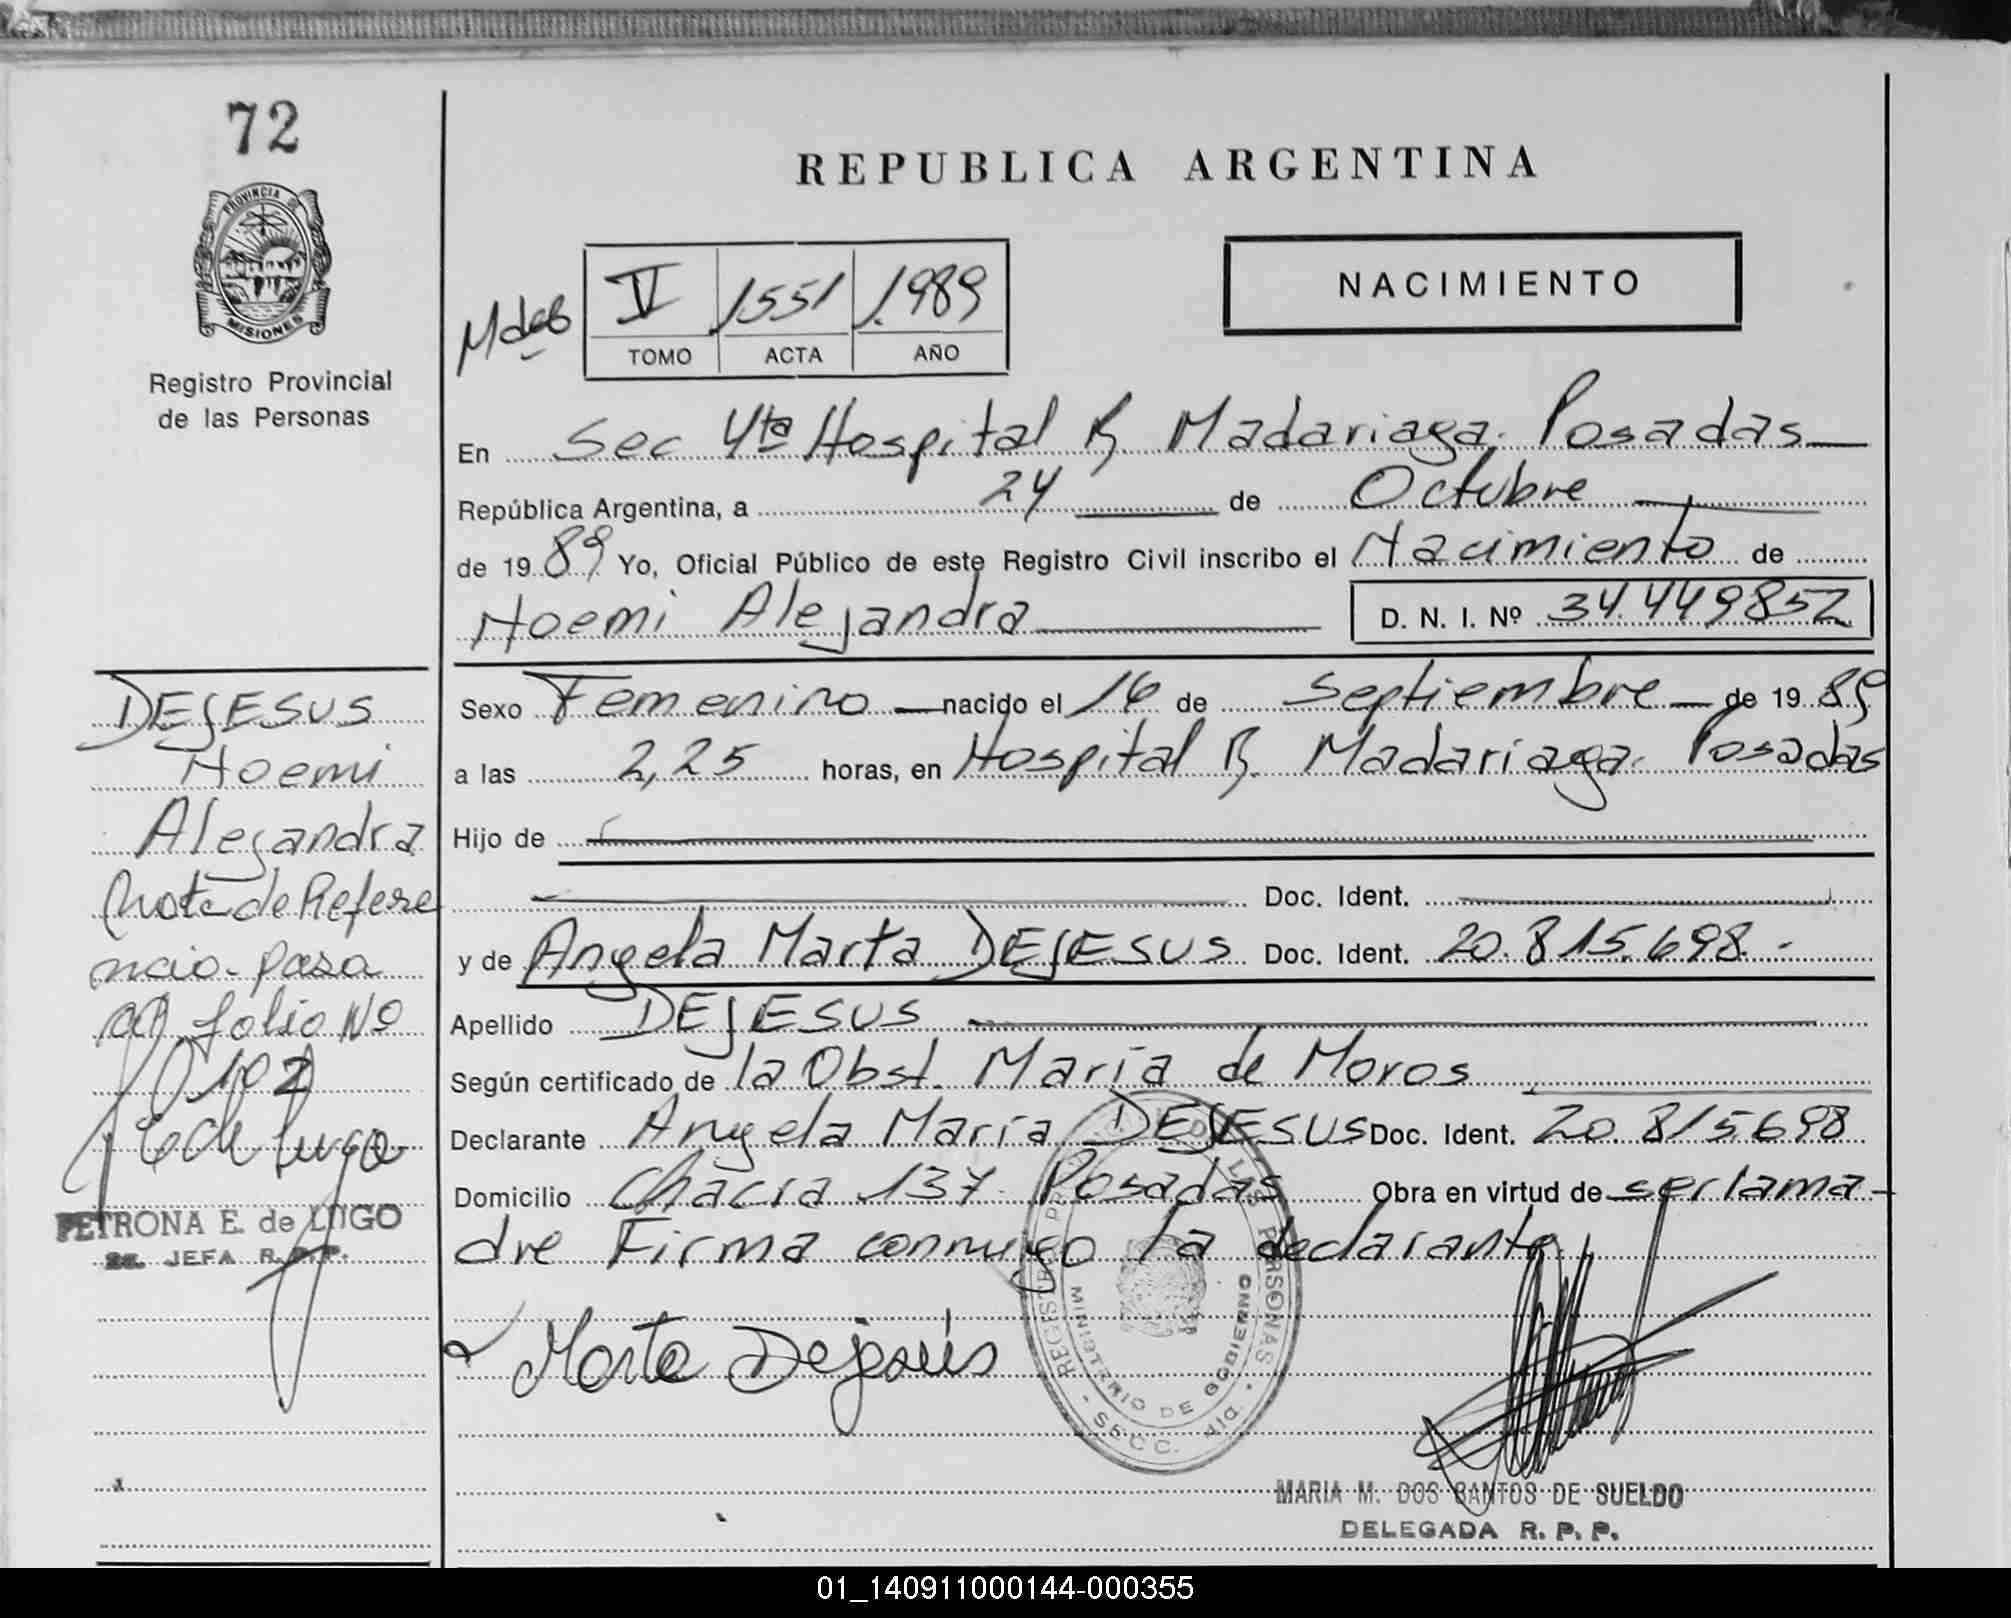 72
PROVINCIA DE
MISIONES
Registro Provincial
de las Personas
REPUBLICA ARGENTINA
Mdes V 1551 1.989
TOMO ACTA AÑO
NACIMIENTO
En Sec 4ta Hospital R. Madariaga. Posadas
República Argentina, a 24 de Octubre
de 1989 Yo, Oficial Público de este Registro Civil inscribo el Nacimiento de
Noemi Alejandra D. N. I. Nº 34.449852
Sexo Femenino nacido el 16 de Septiembre de 1989
a las 2,25 horas, en Hospital R. Madariaga. Posadas
Hijo de
Doc. Ident.
y de Angela Marta DEJESUS Doc. Ident. 20.815.698.-
Apellido DEJESUS
Según certificado de la Obst. Maria de Moros
Declarante Angela Maria DEJESUS Doc. Ident. 20.815.698
Domicilio Chacra 137 Posadas Obra en virtud de ser la ma-
dre Firma conmigo la declarante
Marta Dejesús
REGISTRO PROVINCIAL DE LAS PERSONAS
MINISTERIO DE GOBIERNO
SECC. 4ta.
MARIA M. DOS SANTOS DE SUELDO
DELEGADA R. P. P.
DEJESUS
Noemi
Alejandra
Nota de Refere
ncia- pasa
al folio Nº
102
P E de Lugo
PETRONA E. de LUGO
2a. JEFA R. P. P.
01_140911000144-000355